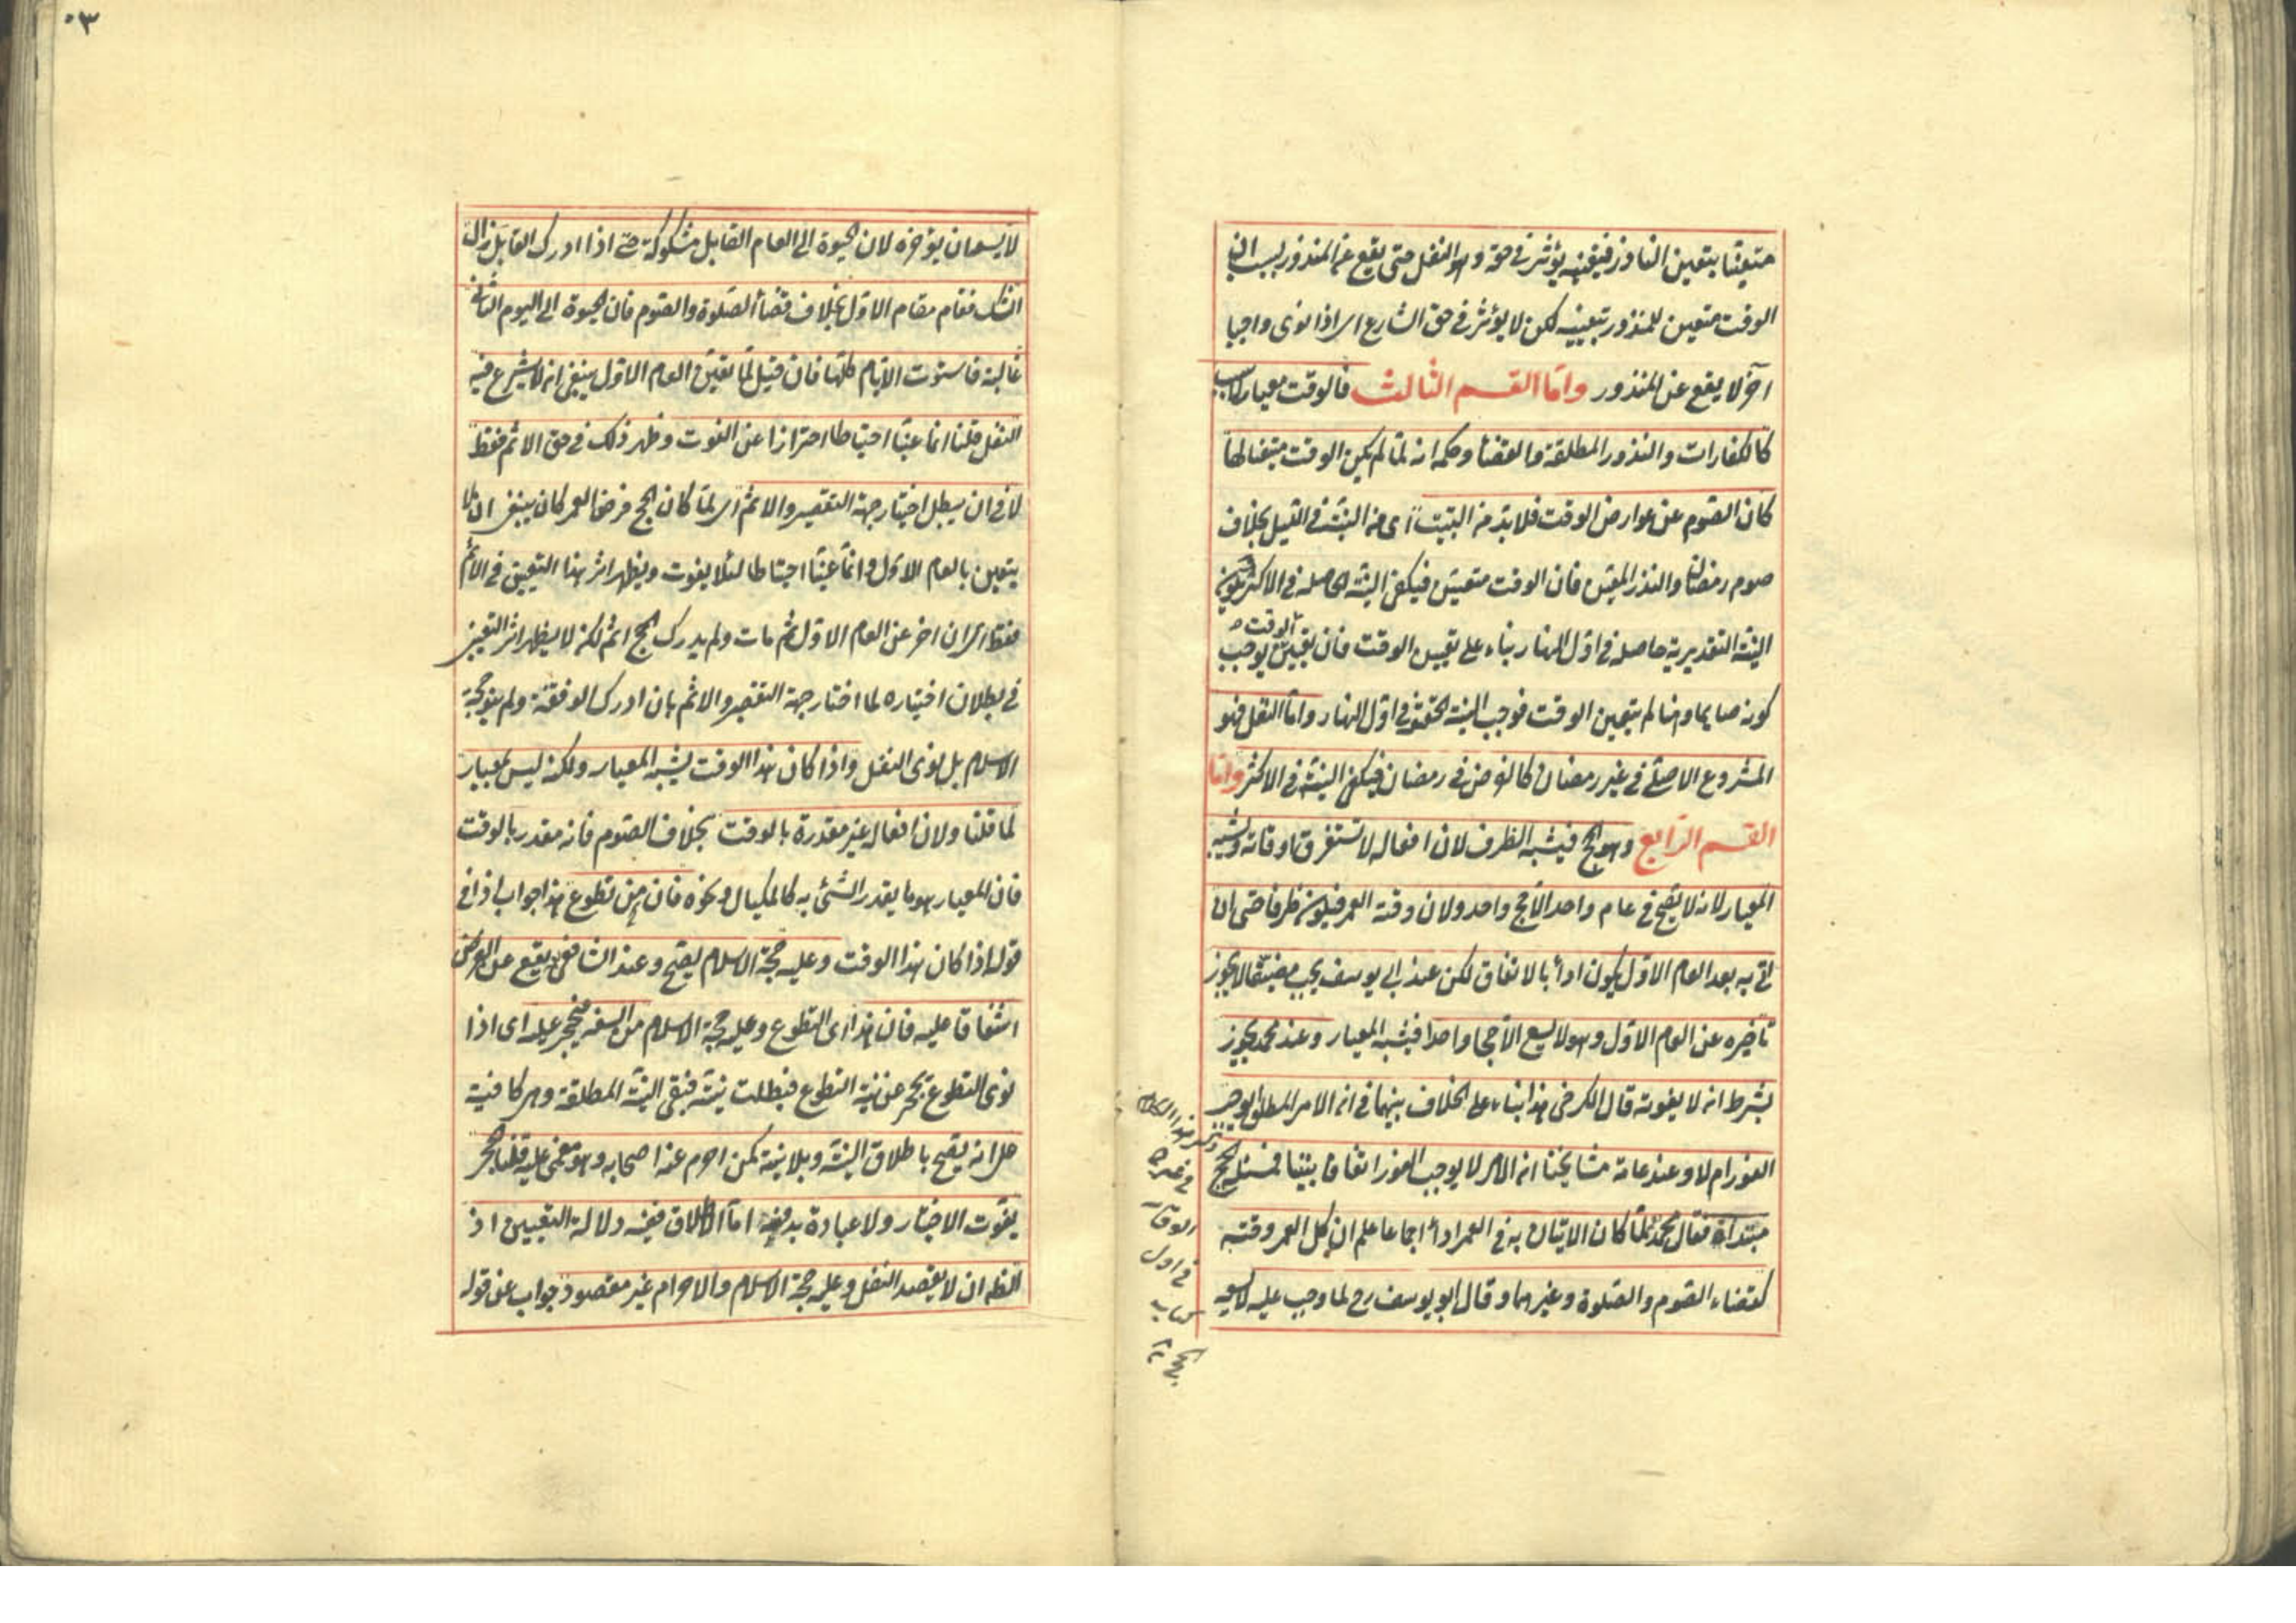 متعينا بتعين الناذر فتعينه يؤثر في حقه وهو النفل حتى يقع عن المنذور بسبب ان
الوقت متعين للمنذور بتعيينه لكن لا يؤثر في حق الشارع اى اذا نوى واجبا
آخر لا يقع عن المنذور واما القسم الثالث فالوقت معيار لا سبب
كالكفارات والنذور المطلقة والقضأ وحكمه انه لما لم يكن الوقت متعينا لها
كان الصوم من عوارض الوقت فلا بد من التبييت اى من النية في الليل بخلاف
صوم رمضان والنذر المعين فان الوقت متعين فيكفى النية الحاصلة في الاكثر ويكون
النية التقديرية حاصلة في اول النهار بناء على تعين الوقت فان تعين الوقت يوجب
كونه صايما وهنا لم يتعين الوقت فوجب النية الحقيقة في اول النهار واما النفل فهو
المشروع الاصلى في غير رمضان كالفرض في رمضان فيكفى النية في الاكثر واما
القسم الرابع وهو الحج فيشبه الظرف لان افعاله لا تستغرق اوقاته ويشبه
المعيار لانه لا يصح في عام واحد الا حج واحد ولان وقته العمر فيكون ظرفا حتى ان
اتى به بعد العام الاول يكون ادأ بالاتفاق لكن عند ابى يوسف يجب مضيقا لا يجوز
تأخيره عن العام الاول وهو لا يسع الا حجا واحدا فيشبه المعيار وعند محمد يجوز
بشرط ان لا يفوته قال الكرخى هذا بناء على الخلاف بينهما في ان الامر المطلق يوجب
الفور ام لا وعند عامة مشايخنا ان الامر لا يوجب الفور اتفاقا بيننا فمسئلة الحج
مبتدأة فقال محمد لما كان الاتيان به في العمر ادأ اجماعا علم ان كل العمر وقته
كقضاء الصوم والصلوة وغيرهما وقال ابو يوسف رح لما وجب عليه لا يسعه
في اول
كتاب
الحج
٠٣
لا يسعه ان يؤخره لان الحيوة الى العام القابل مشكوكة حتى اذا ادرك القابل زال
الشك فقام مقام الاول بخلاف قضأ الصلوة والصوم فان الحيوة الى اليوم الثانى
غالبة فاستوت الايام كلها فان قيل لما تعين العام الاول ينبغى ان لا يشرع فيه
النفل قلنا انما عينا احتياطا احترازا عن الفوت وظهر ذلك في حق الاثم فقط
لا في ان يبطل اختيار جهة التقصير والاثم اى لما كان الحج فرض العمر كان ينبغى ان لا
يتعين بالعام الاول وانما عينا احتياطا لئلا يفوت ويظهر اثر هذا التعيين في الاثم
فقط اى ان اخر عن العام الاول ثم مات ولم يدرك الحج اثم لكن لا يظهر اثر التعيين
في بطلان اختياره لما اختار جهة التقصير والاثم بان ادرك الوقفة ولم ينو حجة
الاسلام بل نوى النفل واذا كان هذا الوقت يشبه المعيار ولكنه ليس بمعيار
لما قلنا ولان افعاله غير مقدرة بالوقت بخلاف الصوم فانه مقدر بالوقت
فان المعيار هو ما يقدر الشئ به كالمكيال ونحوه فان تطوع هذا جواب اذا في
قوله اذا كان هذا الوقت وعليه حجة الاسلام يصح وعند الشافعى يقع عن الفرض
اشفاقا عليه فان هذا اى التطوع وعليه حجة الاسلام من السفه فيحجر عليه اى اذا
نوى التطوع يحجر عن نية التطوع فبطلت نيته فبقى النية المطلقة وهى كافية
على انه يصح باطلاق النية وبلا نية كمن احرم عنه اصحابه وهو مغمى عليه قلنا الحجر
يفوت الاختيار ولا عبادة بدونه اما الاطلاق ففيه دلالة التعيين اذ
الظه ان لا يقصد النفل وعليه حجة الاسلام والاحرام غير مقصود جواب عن قوله